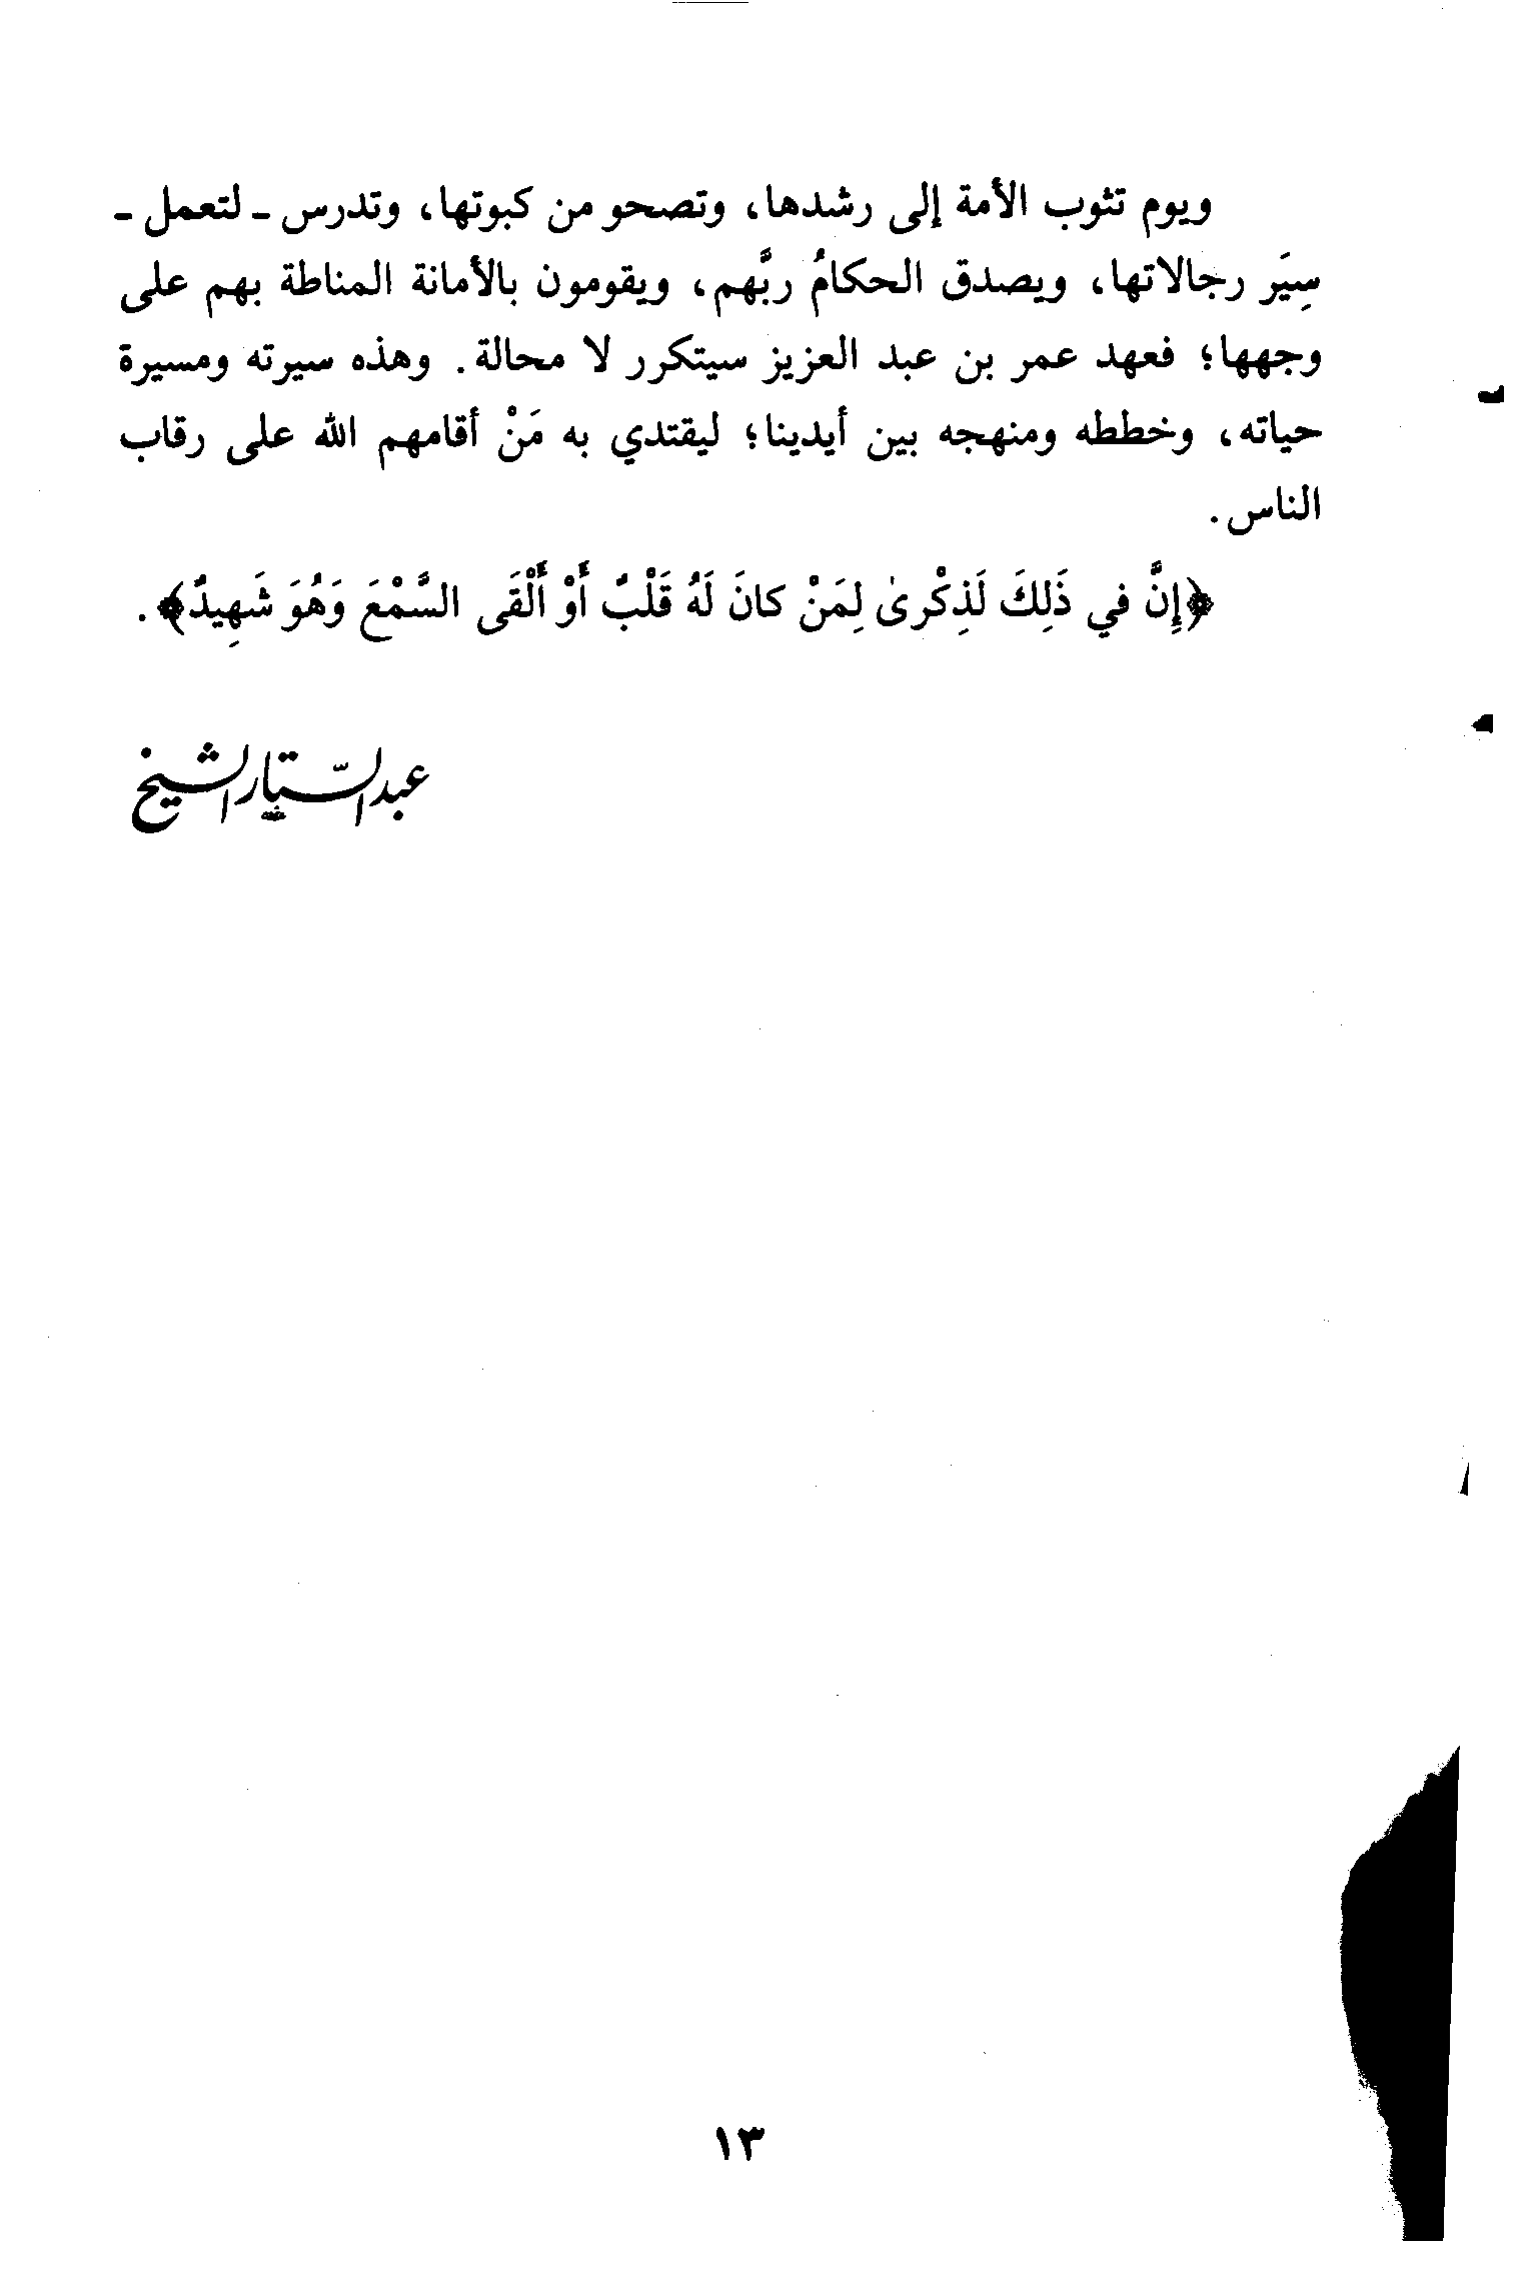 ويوم تثوب الأمة إلى رشدها، وتصحو من كبوتها، وتدرس ـ لتعمل ـ
سِيَر رجالاتها، ويصدق الحكامُ ربَّهم، ويقومون بالأمانة المناطة بهم على
وجهها؛ فعهد عمر بن عبد العزيز سيتكرر لا محالة. وهذه سيرته ومسيرة
حياته، وخططه ومنهجه بين أيدينا؛ ليقتدي به مَنْ أقامهم الله على رقاب
الناس.
﴿إِنَّ في ذَلِكَ لَذِكْرىٰ لِمَنْ كانَ لَهُ قَلْبٌ أَوْ أَلْقَى السَّمْعَ وَهُوَ شَهِيدٌ﴾.
عبد الستّار الشيخ
١٣